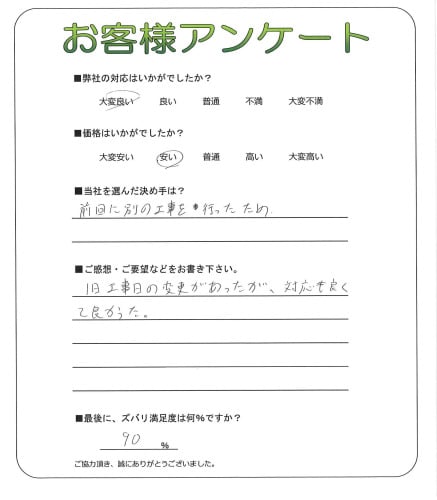 お客様アンケート
■弊社の対応はいかがでしたか?
大変良い 良い 普通 不満 大変不満
■価格はいかがでしたか?
大変安い 安い 普通 高い 大変高い
■当社を選んだ決め手は?
前回に別の工事を行ったため
■ご感想・ご要望などをお書き下さい。
1日工事日の変更があったが、対応も良く
て良かった。
■最後に、ズバリ満足度は何%ですか?
90 %
ご協力頂き、誠にありがとうございました。